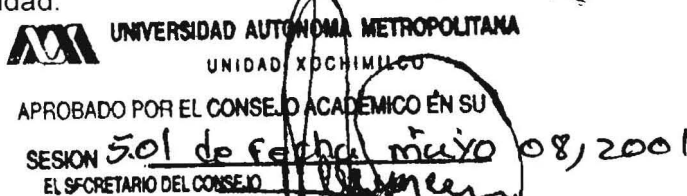 idad.
UNIVERSIDAD AUTONOMA METROPOLITANA
UNIDAD XOCHIMILCO
APROBADO POR EL CONSEJO ACADEMICO EN SU
SESION 5.01 de fecha mayo 08, 2001
EL SECRETARIO DEL CONSEJO